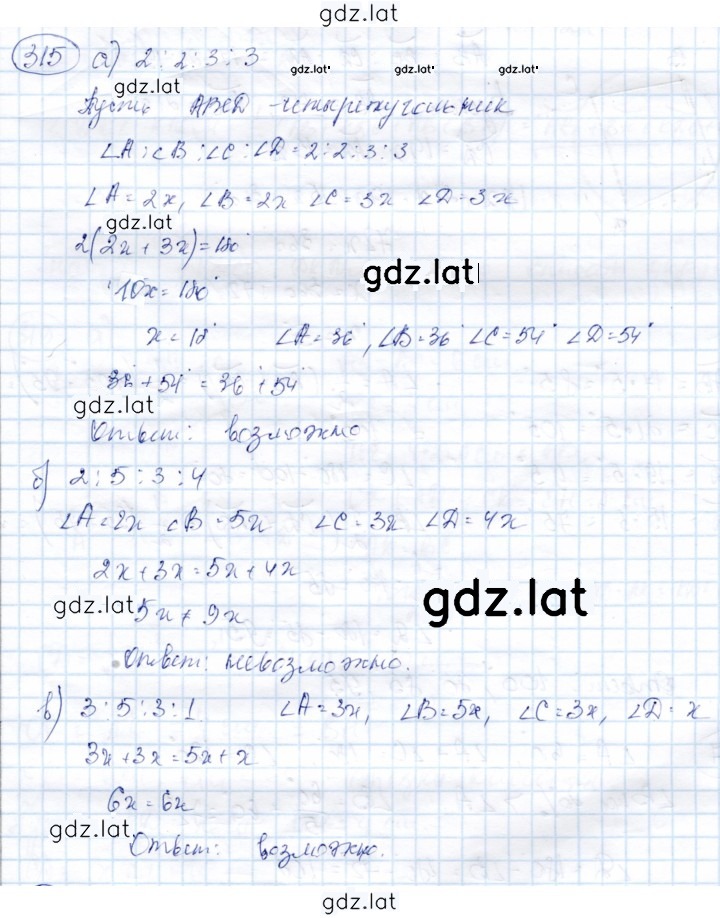 gdz.lat
315 а) 2 : 2 : 3 : 3
gdz.lat gdz.lat gdz.lat gdz.lat
Пусть ABCD - четырехугольник
∠A : ∠B : ∠C : ∠D = 2 : 2 : 3 : 3
∠A = 2x, ∠B = 2x ∠C = 3x ∠D = 3x
gdz.lat
2(2x + 3x) = 180°
gdz.lat
10x = 180°
x = 18° ∠A = 36°, ∠B = 36° ∠C = 54° ∠D = 54°
36° + 54° = 36° + 54°
gdz.lat
Ответ: возможно
б) 2 : 5 : 3 : 4
∠A = 2x ∠B = 5x ∠C = 3x ∠D = 4x
2x + 3x = 5x + 4x
gdz.lat
gdz.lat
5x ≠ 9x
Ответ: невозможно.
в) 3 : 5 : 3 : 1 ∠A = 3x, ∠B = 5x, ∠C = 3x, ∠D = x
3x + 3x = 5x + x
6x = 6x
gdz.lat
Ответ: возможно.
gdz.lat